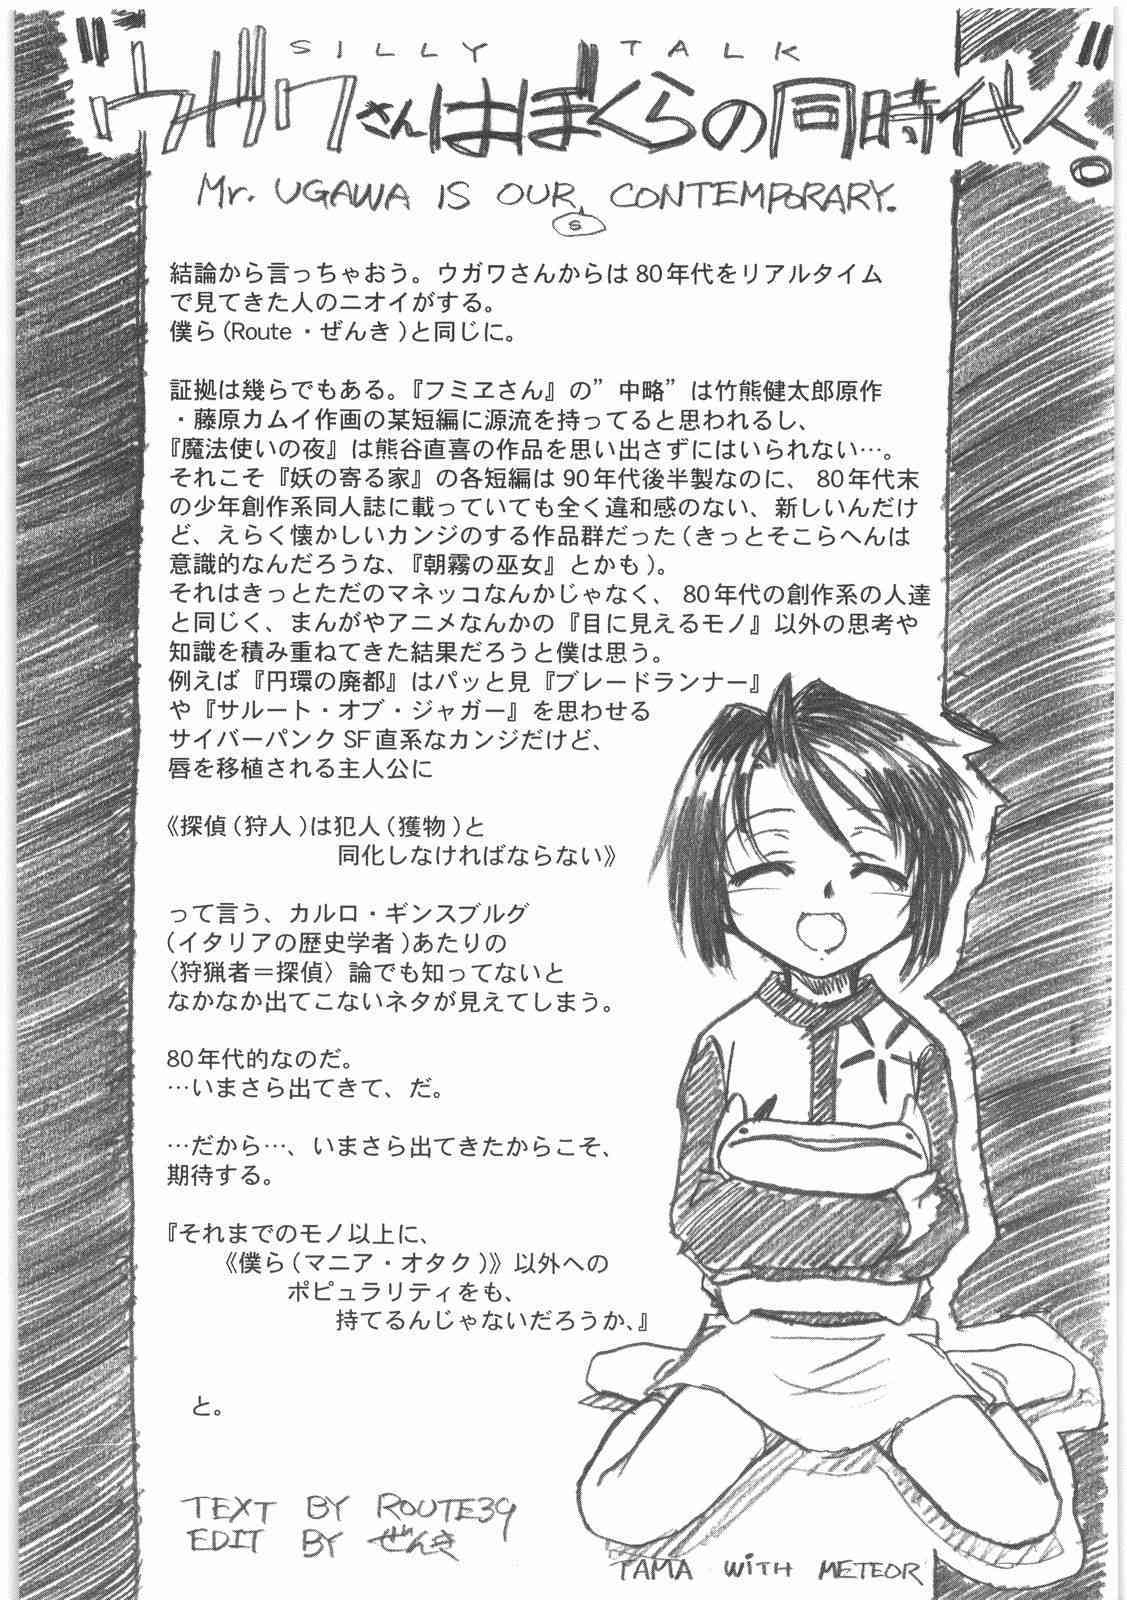 SILLY TALK
"ウガワさんはぼくらの同時代人。"
Mr. UGAWA IS OUR CONTEMPORARY.
s
結論から言っちゃおう。ウガワさんからは80年代をリアルタイム
で見てきた人のニオイがする。
僕ら(Route・ぜんき)と同じに。
証拠は幾らでもある。『フミヱさん』の”中略”は竹熊健太郎原作
・藤原カムイ作画の某短編に源流を持ってると思われるし、
『魔法使いの夜』は熊谷直喜の作品を思い出さずにはいられない…。
それこそ『妖の寄る家』の各短編は90年代後半製なのに、80年代末
の少年創作系同人誌に載っていても全く違和感のない、新しいんだけ
ど、えらく懐かしいカンジのする作品群だった(きっとそこらへんは
意識的なんだろうな、『朝霧の巫女』とかも)。
それはきっとただのマネッコなんかじゃなく、80年代の創作系の人達
と同じく、まんがやアニメなんかの『目に見えるモノ』以外の思考や
知識を積み重ねてきた結果だろうと僕は思う。
例えば『円環の廃都』はパッと見『ブレードランナー』
や『サルート・オブ・ジャガー』を思わせる
サイバーパンクSF直系なカンジだけど、
唇を移植される主人公に
《探偵(狩人)は犯人(獲物)と
同化しなければならない》
って言う、カルロ・ギンスブルグ
(イタリアの歴史学者)あたりの
〈狩猟者＝探偵〉論でも知ってないと
なかなか出てこないネタが見えてしまう。
80年代的なのだ。
…いまさら出てきて、だ。
…だから…、いまさら出てきたからこそ、
期待する。
『それまでのモノ以上に、
《僕ら(マニア・オタク)》以外への
ポピュラリティをも、
持てるんじゃないだろうか、』
と。
TEXT BY ROUTE39
EDIT BY ぜんき
TAMA WITH METEOR